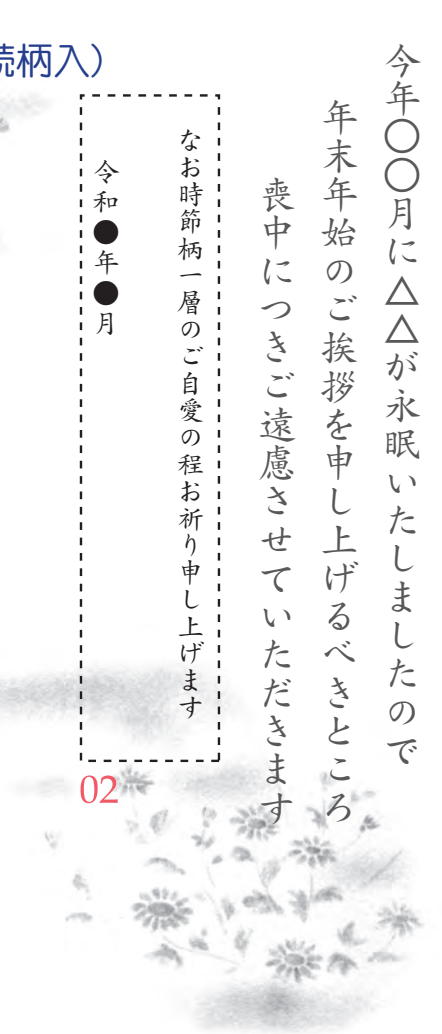 続柄入）
今年〇〇月に△△が永眠いたしましたので
年末年始のご挨拶を申し上げるべきところ
喪中につきご遠慮させていただきます
なお時節柄一層のご自愛の程お祈り申し上げます
令和●年●月
02